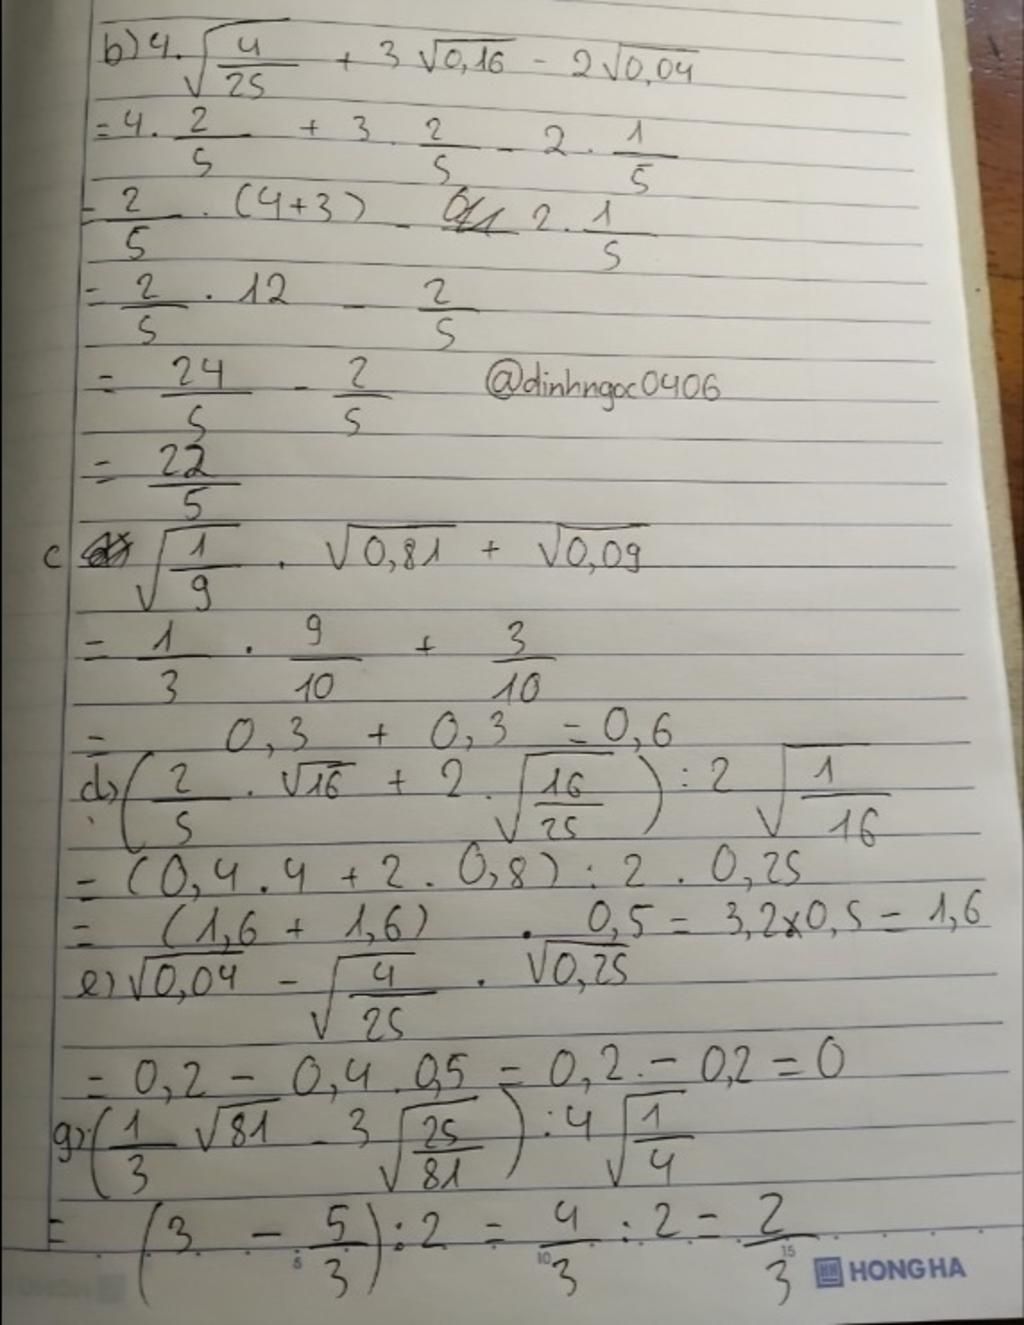 b) 4. √(4/25) + 3 √0,16 - 2√0,04
= 4. 2/5 + 3. 2/5 - 2. 1/5
= 2/5 . (4+3) - 2. 1/5
= 2/5 . 12 - 2/5
= 24/5 - 2/5 @dinhngoc0406
= 22/5
c √(1/9) . √0,81 + √0,09
= 1/3 . 9/10 + 3/10
= 0,3 + 0,3 = 0,6
d) (2/5 . √16 + 2. √(16/25)) : 2 √(1/16)
= (0,4.4 + 2. 0,8) : 2 . 0,25
= (1,6 + 1,6) . 0,5 = 3,2x0,5 = 1,6
e) √0,04 - √(4/25) . √0,25
= 0,2 - 0,4.0,5 = 0,2 - 0,2 = 0
g) (1/3 √81 - 3 √(25/81)) : 4 √(1/4)
= (3 - 5/3) : 2 = 4/3 : 2 = 2/3
5 10 15 HONG HA